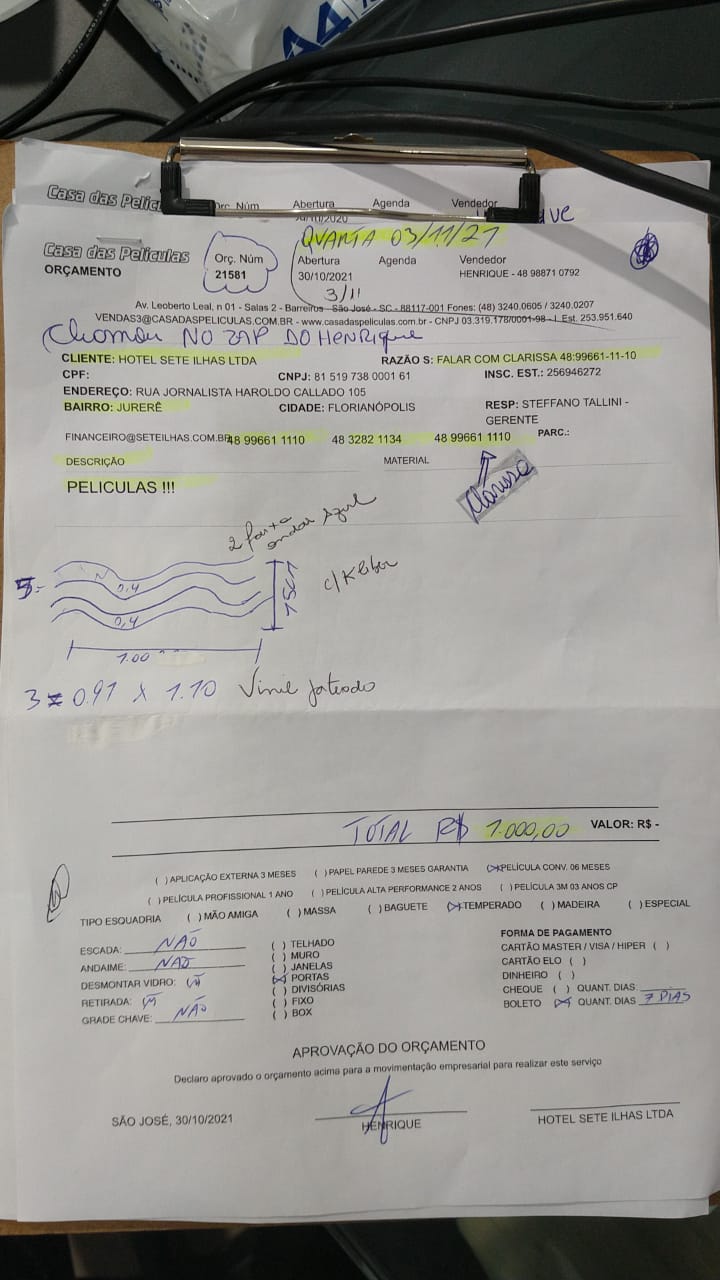 A4
Casa das Pelíc
Orç. Núm Abertura Agenda Vendedor
QUARTA 03/11/21
Casa das Películas
ORÇAMENTO
Orç. Núm Abertura Agenda Vendedor
21581 30/10/2021 HENRIQUE - 48 98871 0792
3/11
Av. Leoberto Leal, n 01 - Salas 2 - Barreiros - São José - SC - 88117-001 Fones: (48) 3240.0605 / 3240.0207
VENDAS3@CASADASPELICULAS.COM.BR - www.casadaspeliculas.com.br - CNPJ 03.319.178/0001-98 - I. Est. 253.951.640
NO ZAP DO HENRIQUE
CLIENTE: HOTEL SETE ILHAS LTDA RAZÃO S: FALAR COM CLARISSA 48:99661-11-10
CPF: CNPJ: 81 519 738 0001 61 INSC. EST.: 256946272
ENDEREÇO: RUA JORNALISTA HAROLDO CALLADO 105
BAIRRO: JURERÊ CIDADE: FLORIANÓPOLIS RESP: STEFFANO TALLINI -
GERENTE
FINANCEIRO@SETEILHAS.COM.BR 48 99661 1110 48 3282 1134 48 99661 1110 PARC.:
DESCRIÇÃO MATERIAL
Clarissa
PELICULAS !!!
2
azul
c/ Kleber
0,4
0,4
1.00
3 = 0.91 X 1.10 Vinil jateado
TOTAL R$ 1.000,00 VALOR: R$ -
( ) APLICAÇÃO EXTERNA 3 MESES ( ) PAPEL PAREDE 3 MESES GARANTIA (X) PELÍCULA CONV. 06 MESES
( ) PELÍCULA PROFISSIONAL 1 ANO ( ) PELÍCULA ALTA PERFORMANCE 2 ANOS ( ) PELÍCULA 3M 03 ANOS CP
TIPO ESQUADRIA ( ) MÃO AMIGA ( ) MASSA ( ) BAGUETE (X) TEMPERADO ( ) MADEIRA ( ) ESPECIAL
ESCADA: NAÕ
ANDAIME: NAÕ
DESMONTAR VIDRO:
RETIRADA:
GRADE CHAVE: NAÕ
( ) TELHADO
( ) MURO
( ) JANELAS
(X) PORTAS
( ) DIVISÓRIAS
( ) FIXO
( ) BOX
FORMA DE PAGAMENTO
CARTÃO MASTER / VISA / HIPER ( )
CARTÃO ELO ( )
DINHEIRO ( )
CHEQUE ( ) QUANT. DIAS
BOLETO (X) QUANT. DIAS 7 DIAS
APROVAÇÃO DO ORÇAMENTO
Declaro aprovado o orçamento acima para a movimentação empresarial para realizar este serviço
SÃO JOSÉ, 30/10/2021 HENRIQUE HOTEL SETE ILHAS LTDA